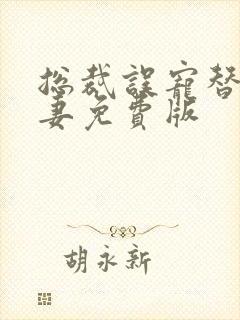 总裁误宠替
妻免費版
胡永新